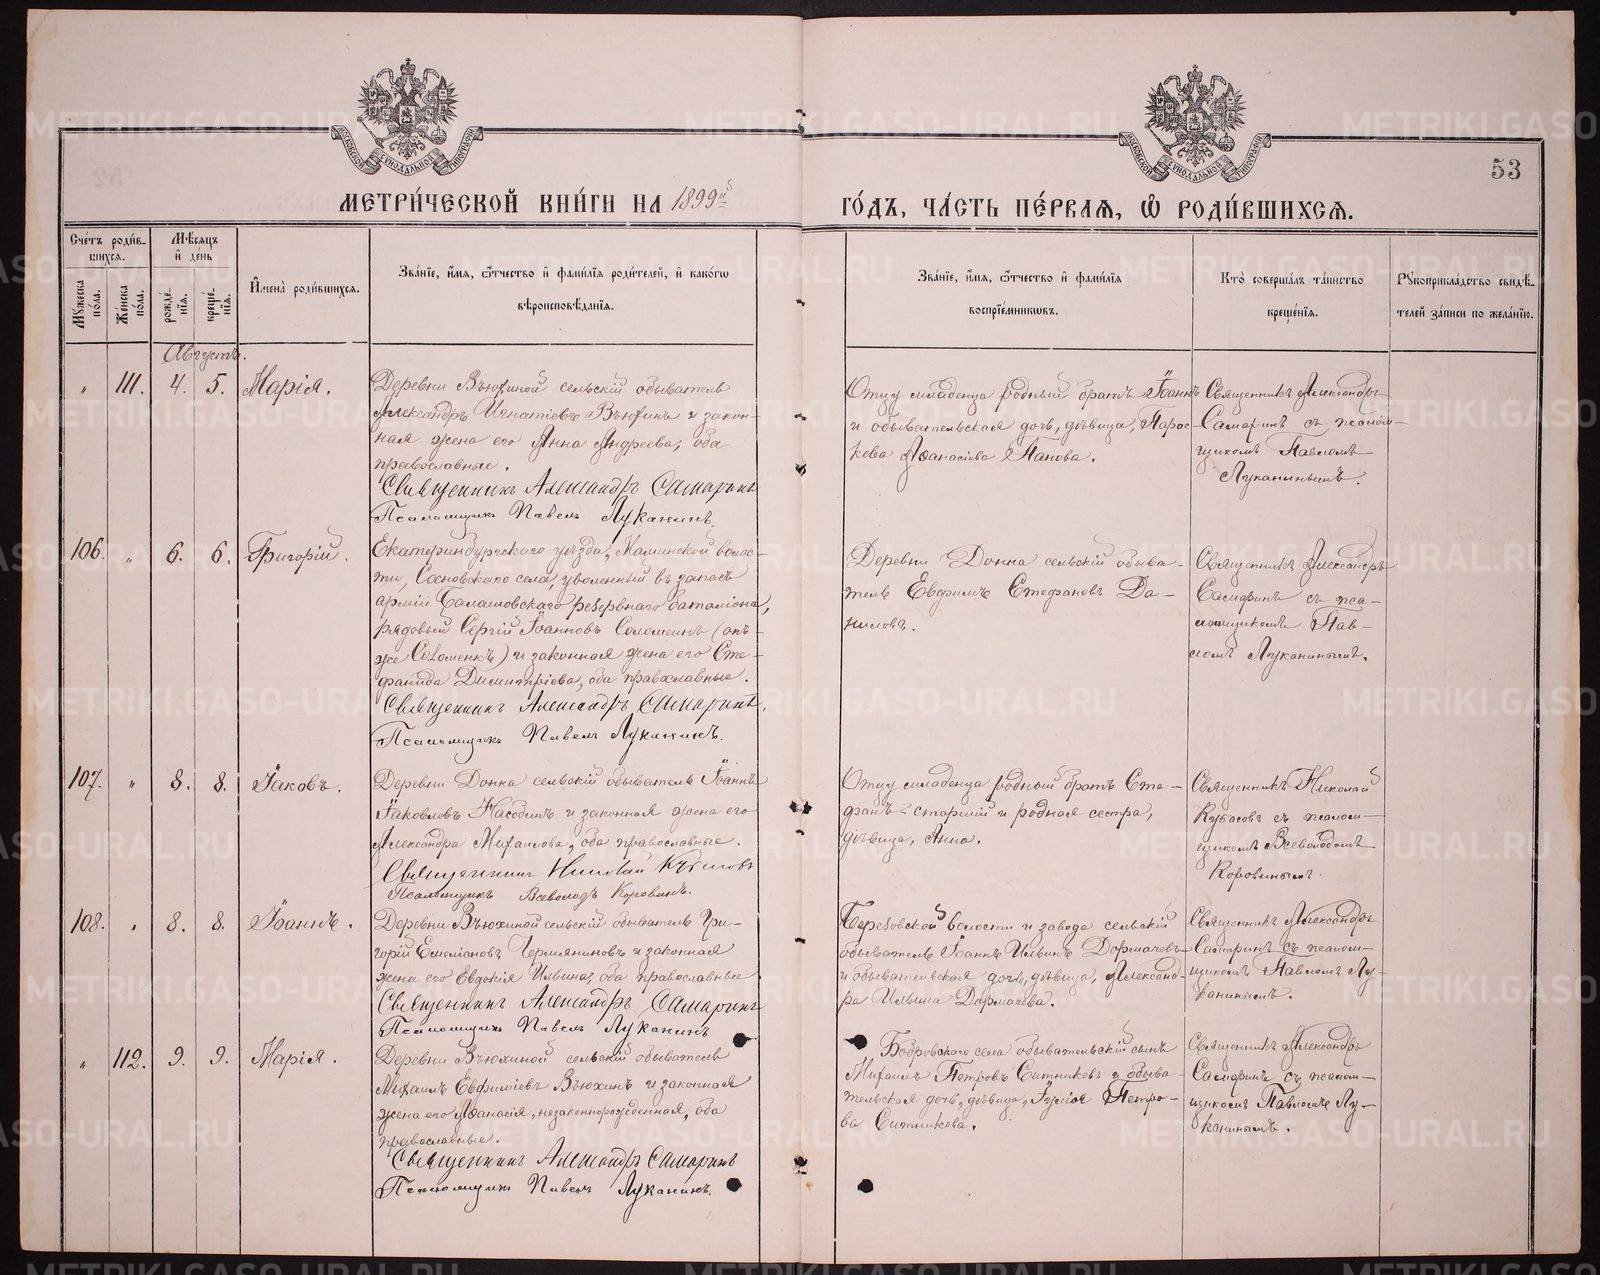 МОСКОВСКОЙ СѴНОДАЛЬНОЙ ТИПОГРАФІИ
МОСКОВСКОЙ СѴНОДАЛЬНОЙ ТИПОГРАФІИ
53
МЕТРИ́ЧЕСКОЙ КНИ́ГИ НА 1899й
ГО́ДЪ, ЧА́СТЬ ПЕ́РВАѦ, Ѽ РОДИ́ВШИХСѦ.
Сче́тъ роди́в-
шихсѧ.
Мꙋжеска по́ла.
Же́нска по́ла.
Мѣ́сѧцъ
и҆ де́нь
рожде́-
нїѧ.
креще́-
нїѧ.
И҆мена̀ роди́вшихсѧ.
Зва́нїе, и҆́мѧ, ѻ҆́тчество и҆ фами́лїѧ роди́телей, и҆ како́гѡ
вѣроисповѣ́данїѧ.
Зва́нїе, и҆́мѧ, ѻ҆́тчество и҆ фами́лїѧ
воспрїе́мникѡвъ.
Кто̀ соверша́лъ та́инство
креще́нїѧ.
Рꙋкоприкла́дство свидѣ́-
телей за́писи по жела́нїю.
Августъ.
" 111. 4. 5. Марія.
Деревни Вьюхиной сельскій обыватель
Александръ Игнатіевъ Вьюхинъ и закон-
ная жена его Анна Андреева, оба
православные.
Священникъ Александръ Самаринъ
Псаломщикъ Павелъ Луканинъ.
Отцу младенца родный братъ Іоаннъ
и обывательская дочь, дѣвица, Парас-
кева Аѳанасіева Панова.
Священникъ Александръ
Самаринъ съ псалом-
щикомъ Павломъ
Луканинымъ.
106. " 6. 6. Григорій.
Екатеринбургскаго уѣзда, Маминской волос-
ти, Сосновскаго села, уволенный въ запасъ
арміи Балашовскаго резервнаго баталіона,
рядовый Сергій Іоанновъ Соломеинъ (онъ-
же Соломенкъ) и законная жена его Сте-
фанида Димитріева, оба православные.
Священникъ Александръ Самаринъ.
Псаломщикъ Павелъ Луканинъ.
Деревни Донка сельскій обыва-
тель Евфимъ Стефановъ Да-
ниловъ.
Священникъ Александръ
Самаринъ съ псал-
омщикомъ Пав-
ломъ Луканинымъ.
107. " 8. 8. Іаковъ.
Деревни Донка сельскій обыватель Іоаннъ
Іаковлевъ Насодинъ и законная жена его
Александра Михаилова, оба православные.
Священникъ Николай Кубасовъ
Псаломщикъ Всеволодъ Коровинъ.
Отцу младенца родный братъ Сте-
фанъ-старшій и родная сестра,
дѣвица, Анна.
Священникъ Николай
Кубасовъ съ псалом-
щикомъ Всеволодомъ
Коровинымъ.
108. " 8. 8. Іоаннъ.
Деревни Вьюхиной сельскій обыватель Гри-
горій Емеліановъ Чермяниновъ и законная
жена его Евдокія Ильина, оба православные
Священникъ Александръ Самаринъ
Псаломщикъ Павелъ Луканинъ
Березовской волости и завода сельскій
обыватель Іоаннъ Ильинъ Дормачевъ
и обывательская дочь, дѣвица, Александ-
ра Ильина Дормачева.
Священникъ Александръ
Самаринъ съ псалом-
щикомъ Павломъ Лу-
канинымъ.
" 112. 9. 9. Марія.
Деревни Вьюхиной сельскій обыватель
Михаилъ Евфиміевъ Вьюхинъ и законная
жена его Аѳанасія, незаконнорожденная, оба
православные.
Священникъ Александръ Самаринъ
Псаломщикъ Павелъ Луканинъ.
Бобровскаго села обывательскій сынъ
Михаилъ Петровъ Ситниковъ и обыва-
тельская дочь, дѣвица, Гулія Петро-
ва Ситникова.
Священникъ Александръ
Самаринъ съ псалом-
щикомъ Павломъ Лу-
канинымъ.
METRIKI.GASO-URAL.RU